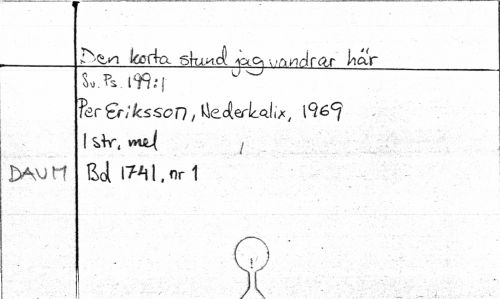 Den korta stund jag vandrar här
Sv. Ps. 199:1
Per Eriksson, Nederkalix, 1969
1 str, mel
DAUM Bd 1741, nr 1